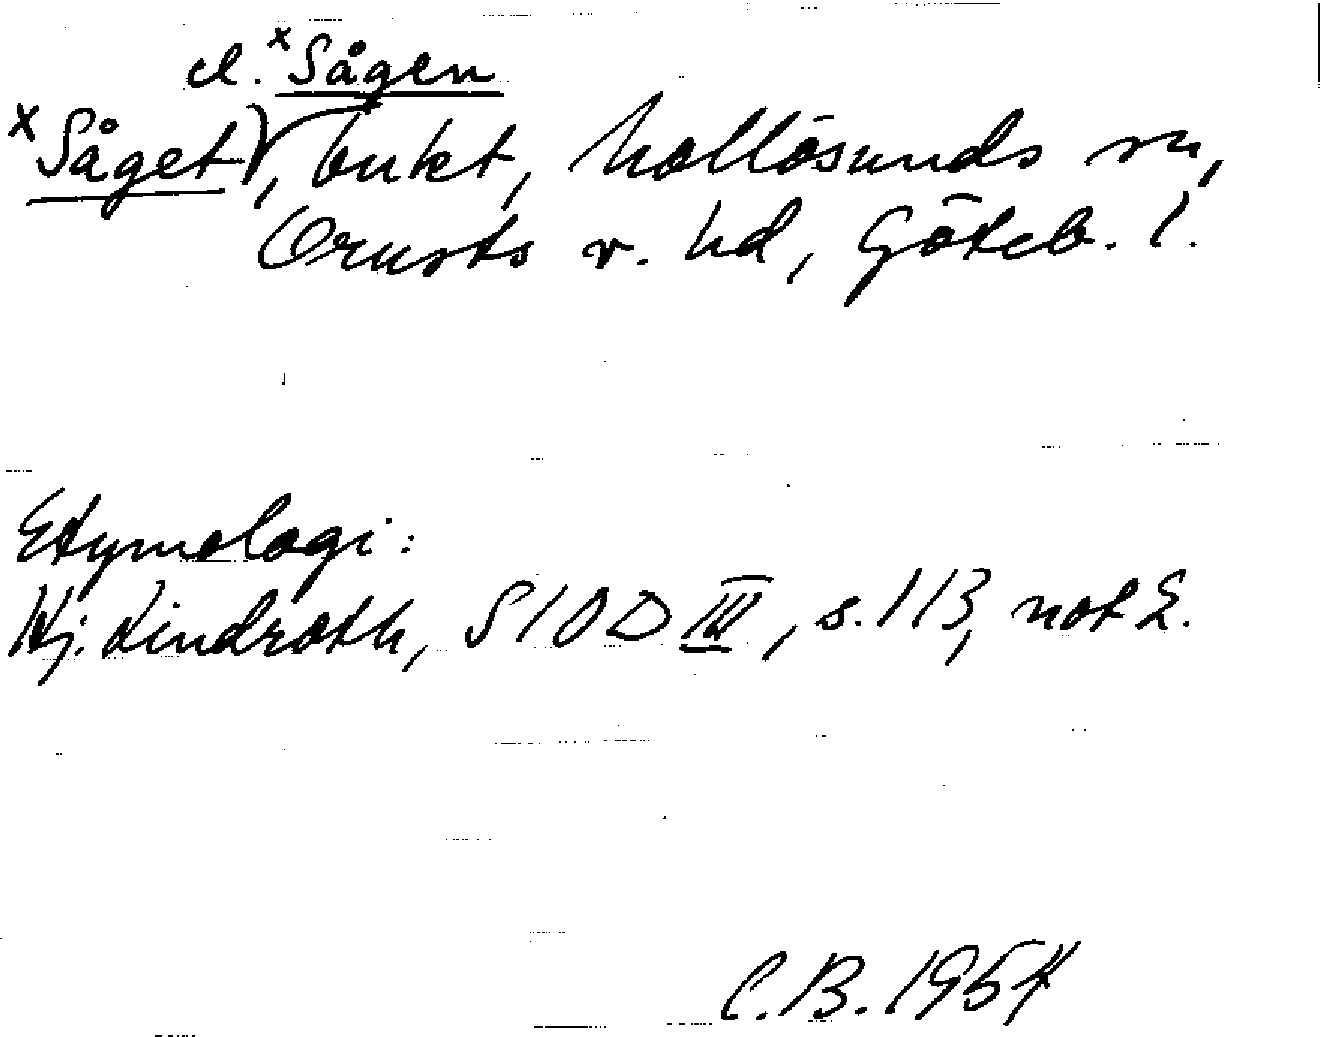 el. ˣSågen
ˣSåget, bukt, Mollösunds sn,
Orusts v. hd, Göteb. l.
Etymologi:
Hj. Lindroth, SIOD III, s. 113, not 2.
C.B. 1954